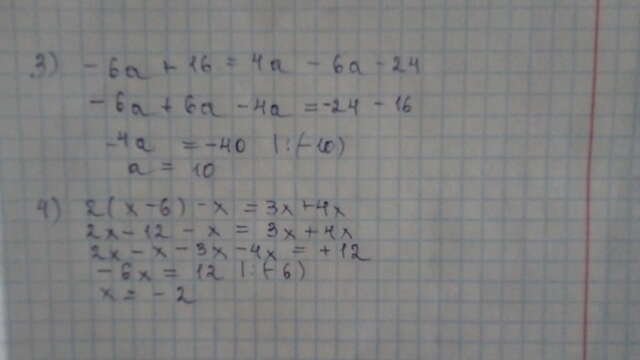 3) - 6a + 16 = 4a - 6a - 24
- 6a + 6a - 4a = -24 - 16
-4a = -40 |:(-10)
a = 10
4) 2(x-6) - x = 3x + 4x
2x - 12 - x = 3x + 4x
2x - x - 3x - 4x = +12
- 6x = 12 |:(-6)
x = - 2